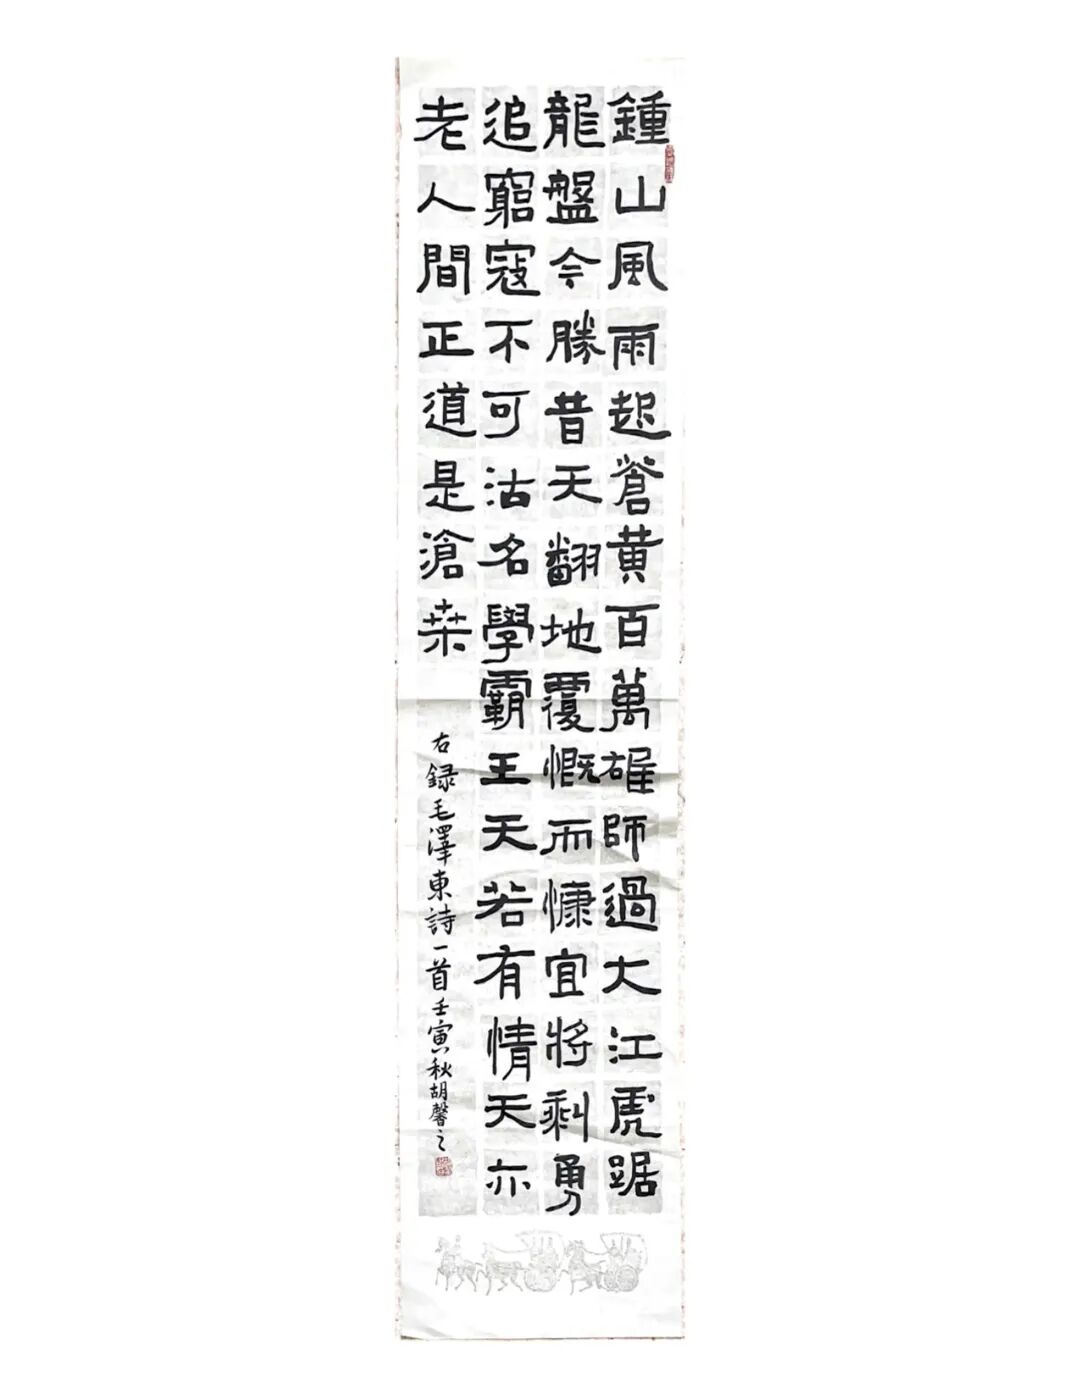 鍾山風雨起蒼黃百萬雄師過大江虎踞
龍盤今勝昔天翻地覆慨而慷宜將剩勇
追窮寇不可沽名學霸王天若有情天亦
老人間正道是滄桒
右録毛澤東詩一首壬寅秋胡馨之